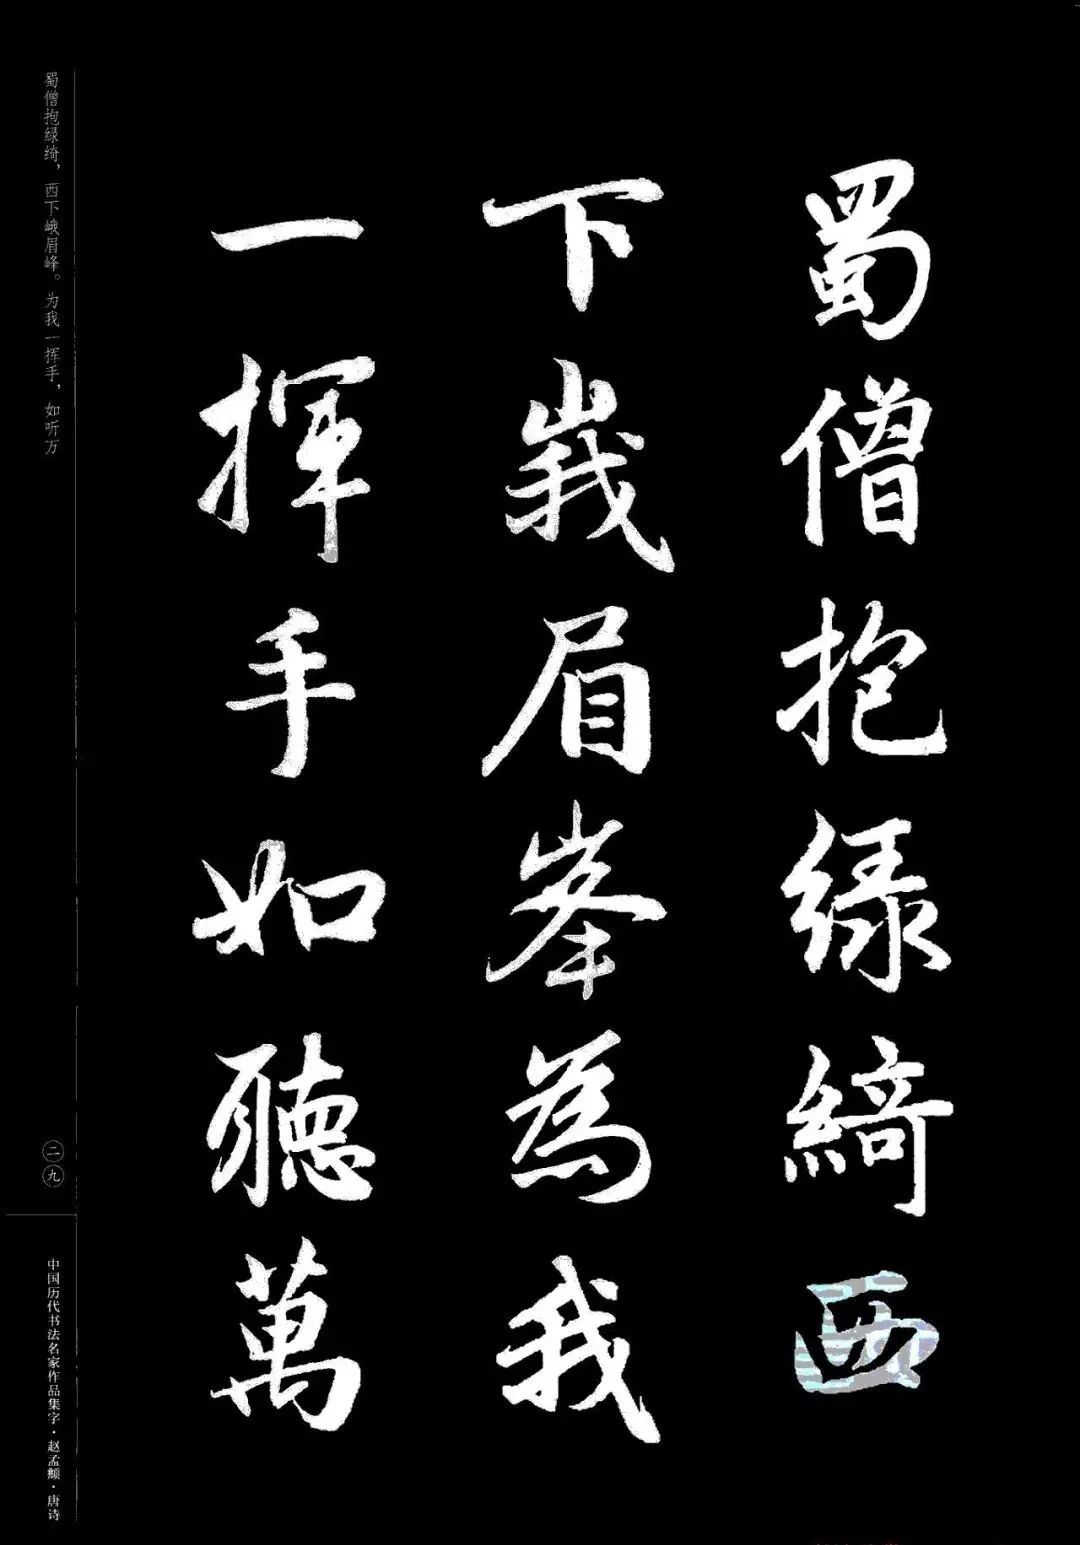 蜀僧抱绿綺西
下峩眉峯為我
一揮手如聽萬
蜀僧抱绿绮，西下峨眉峰。为我一挥手，如听万
二九
中国历代书法名家作品集字·赵孟頫·唐诗